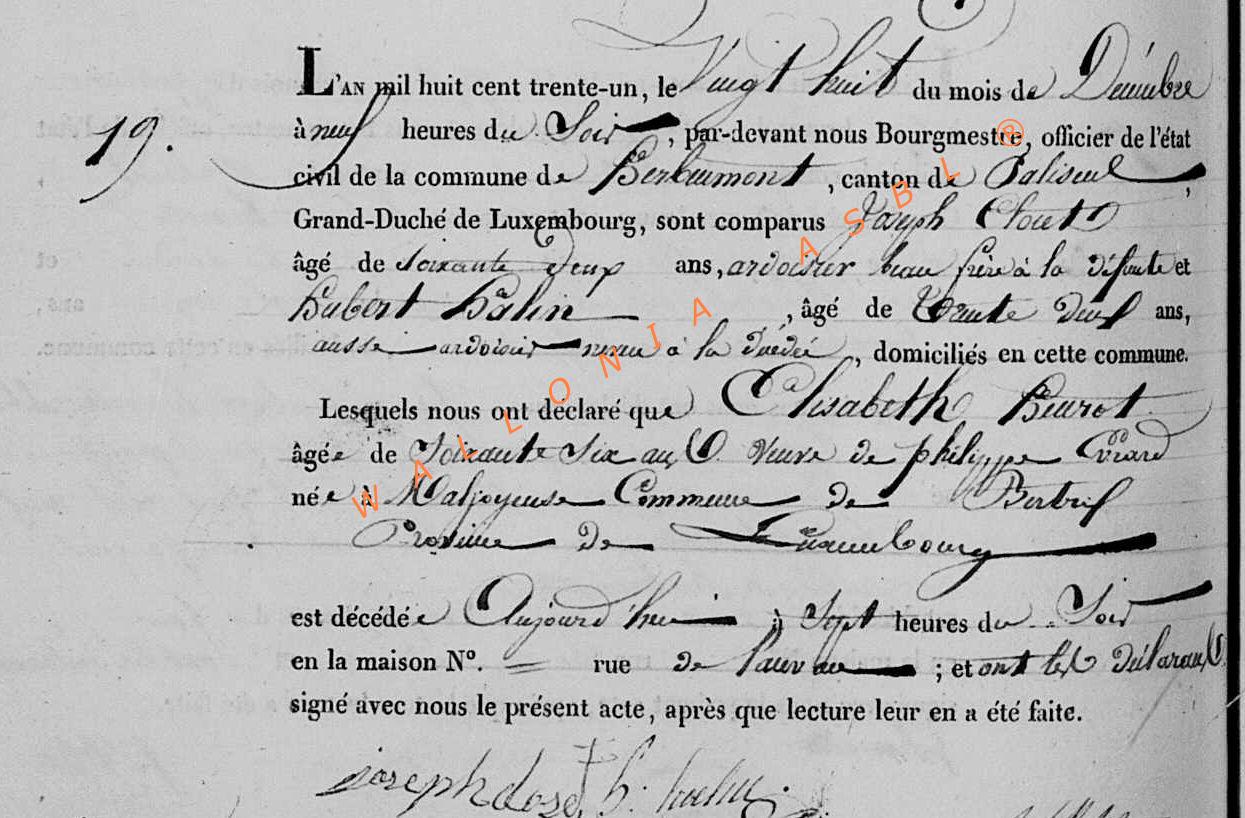 L'AN mil huit cent trente-un, le Vingt huit du mois de Décembre
19. à neuf heures du Soir, par-devant nous Bourgmestre, officier de l'état
civil de la commune de Bertrimont, canton de Paliseul,
Grand-Duché de Luxembourg, sont comparus Joseph
âgé de soixante deux ans, ardoisier beau frère à la défunte et
Hubert Hahin, âgé de trente deux ans,
aussi ardoisier neveu à la, domiciliés en cette commune.
Lesquels nous ont déclaré que Elisabeth Peurot
âgée de Soixante Six ans Veuve de philippe
née à Maljoyeuse Commune de
Province de Luxembourg
est décédée Aujourd'hui à Sept heures du Soir
en la maison N°. = rue de; et ont les déclarans
signé avec nous le présent acte, après que lecture leur en a été faite.
joseph h.
WALLONIA ASBL ®